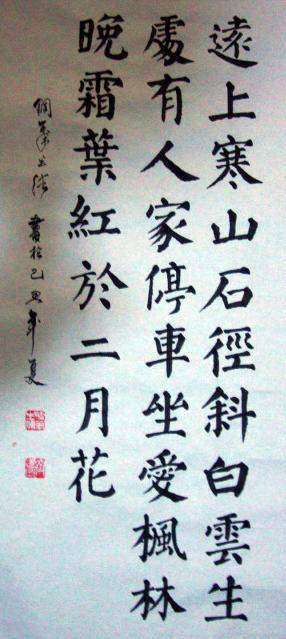 遠上寒山石徑斜白雲生
處有人家停車坐愛楓林
晚霜葉紅於二月花
書於己丑年夏